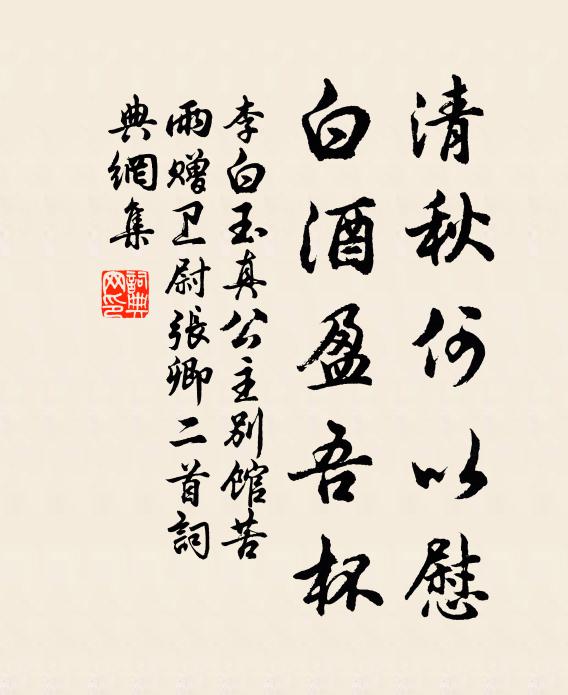 清秋何以慰
白酒盈吾杯
李白玉真公主別馆苦
雨赠卫尉張卿二首詞
典網集
詞典网印